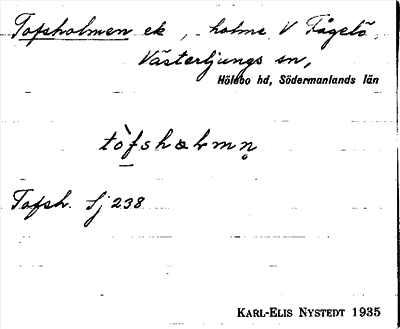 Tofsholmen ek , holme V Fågelö,
Västerljungs sn,
Hölebo hd, Södermanlands län
tòfshɔlmn̥
Tofsh. Sj 238
KARL-ELIS NYSTEDT 1935